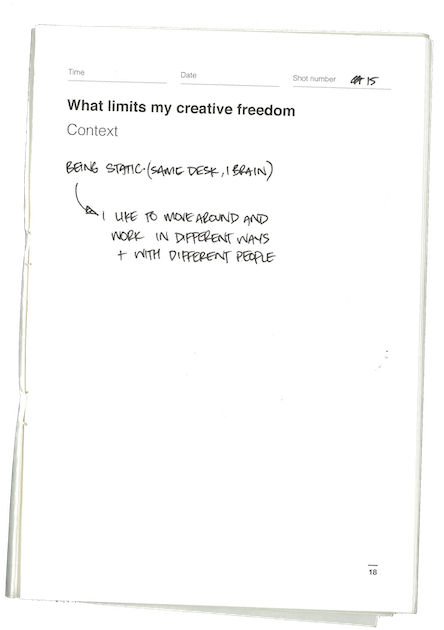 Time Date Shot number 15
What limits my creative freedom
Context
BEING STATIC. (SAME DESK, 1 BRAIN)
I LIKE TO MOVE AROUND AND
WORK IN DIFFERENT WAYS
+ WITH DIFFERENT PEOPLE
18